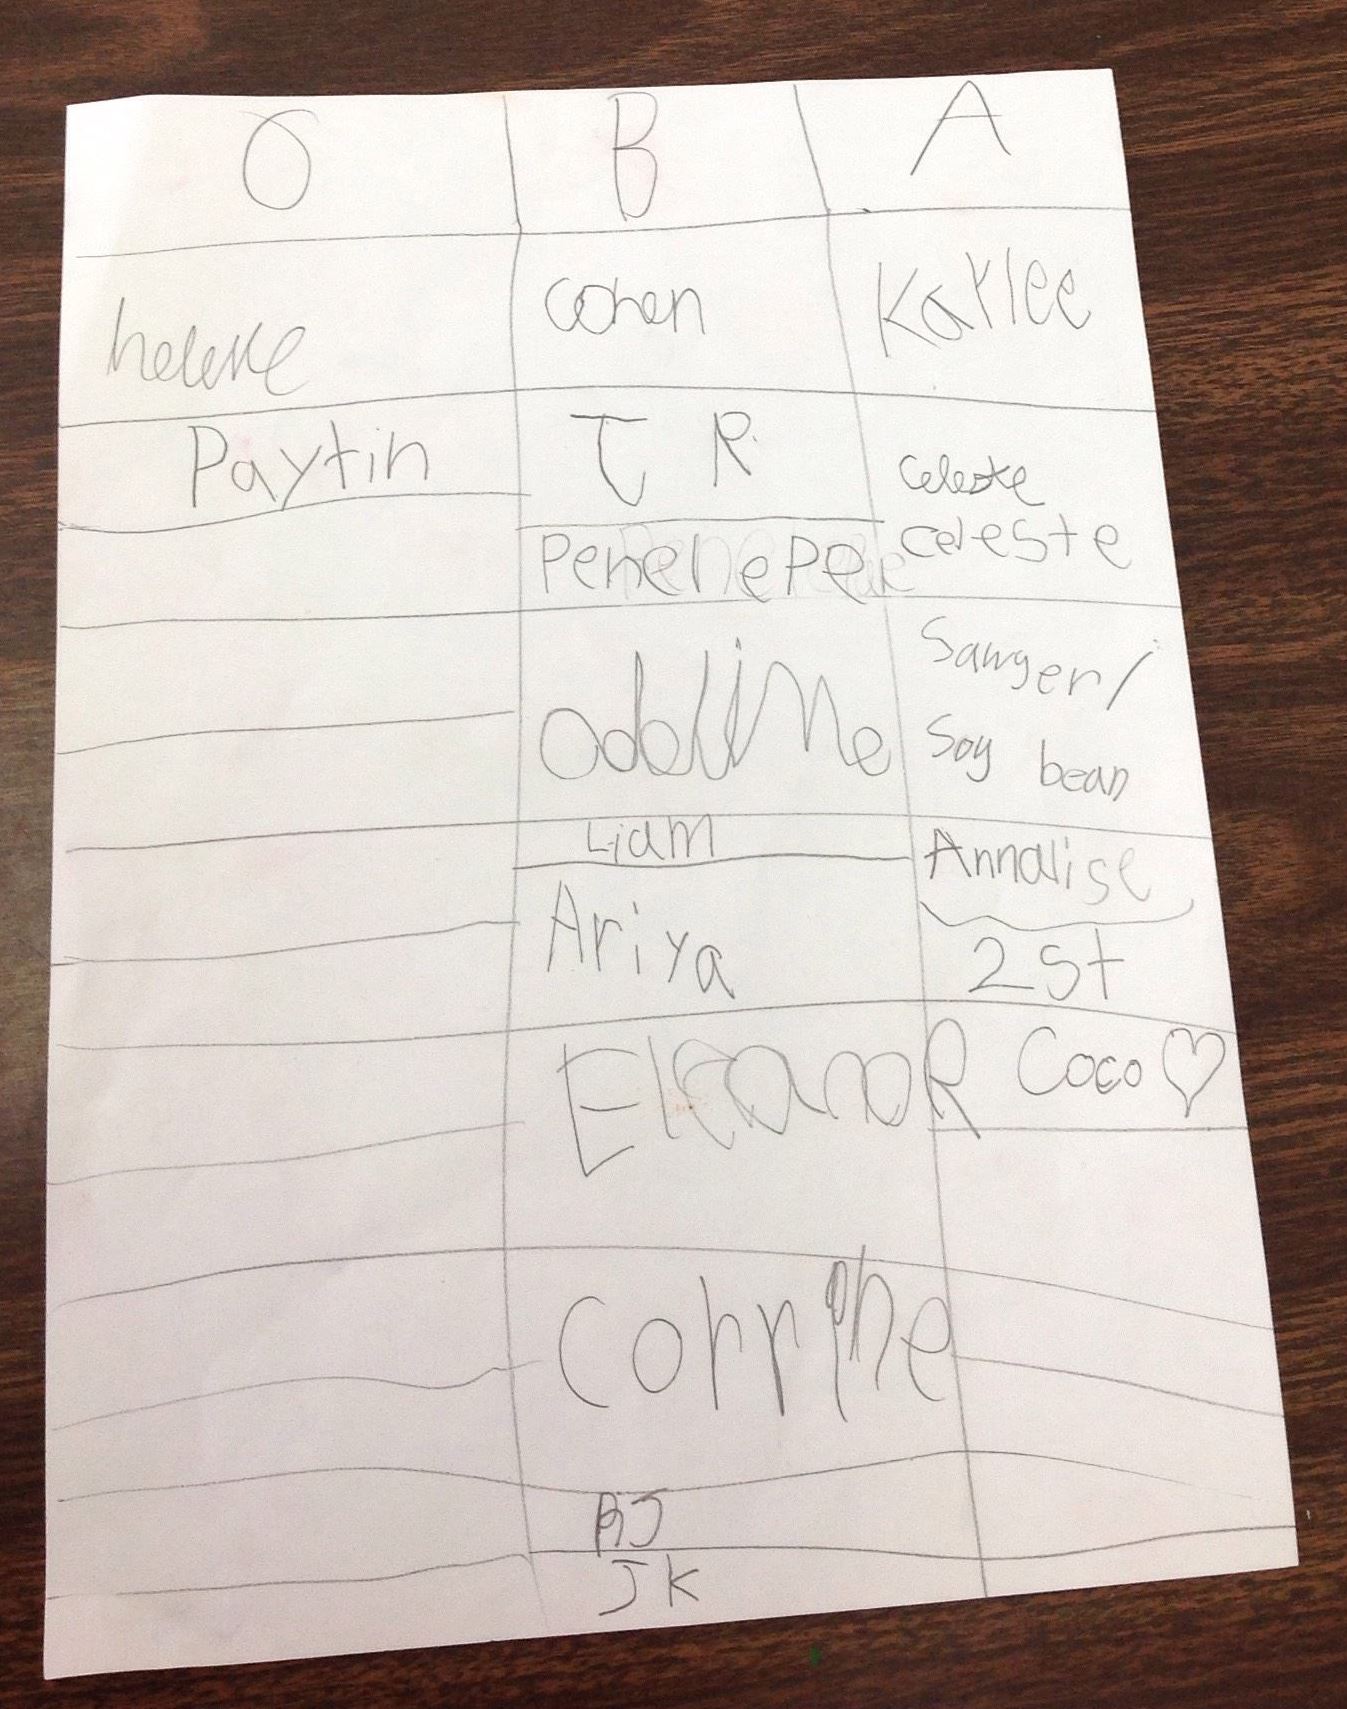 O B A
helene cohen Karlee
Paytin J R Celeste
celeste
Penelepe
Sawyer/
odeline Soy bean
Liam Annalise
Ariya 2st
EleanoR Coco♡
Corrine
RJ
JK